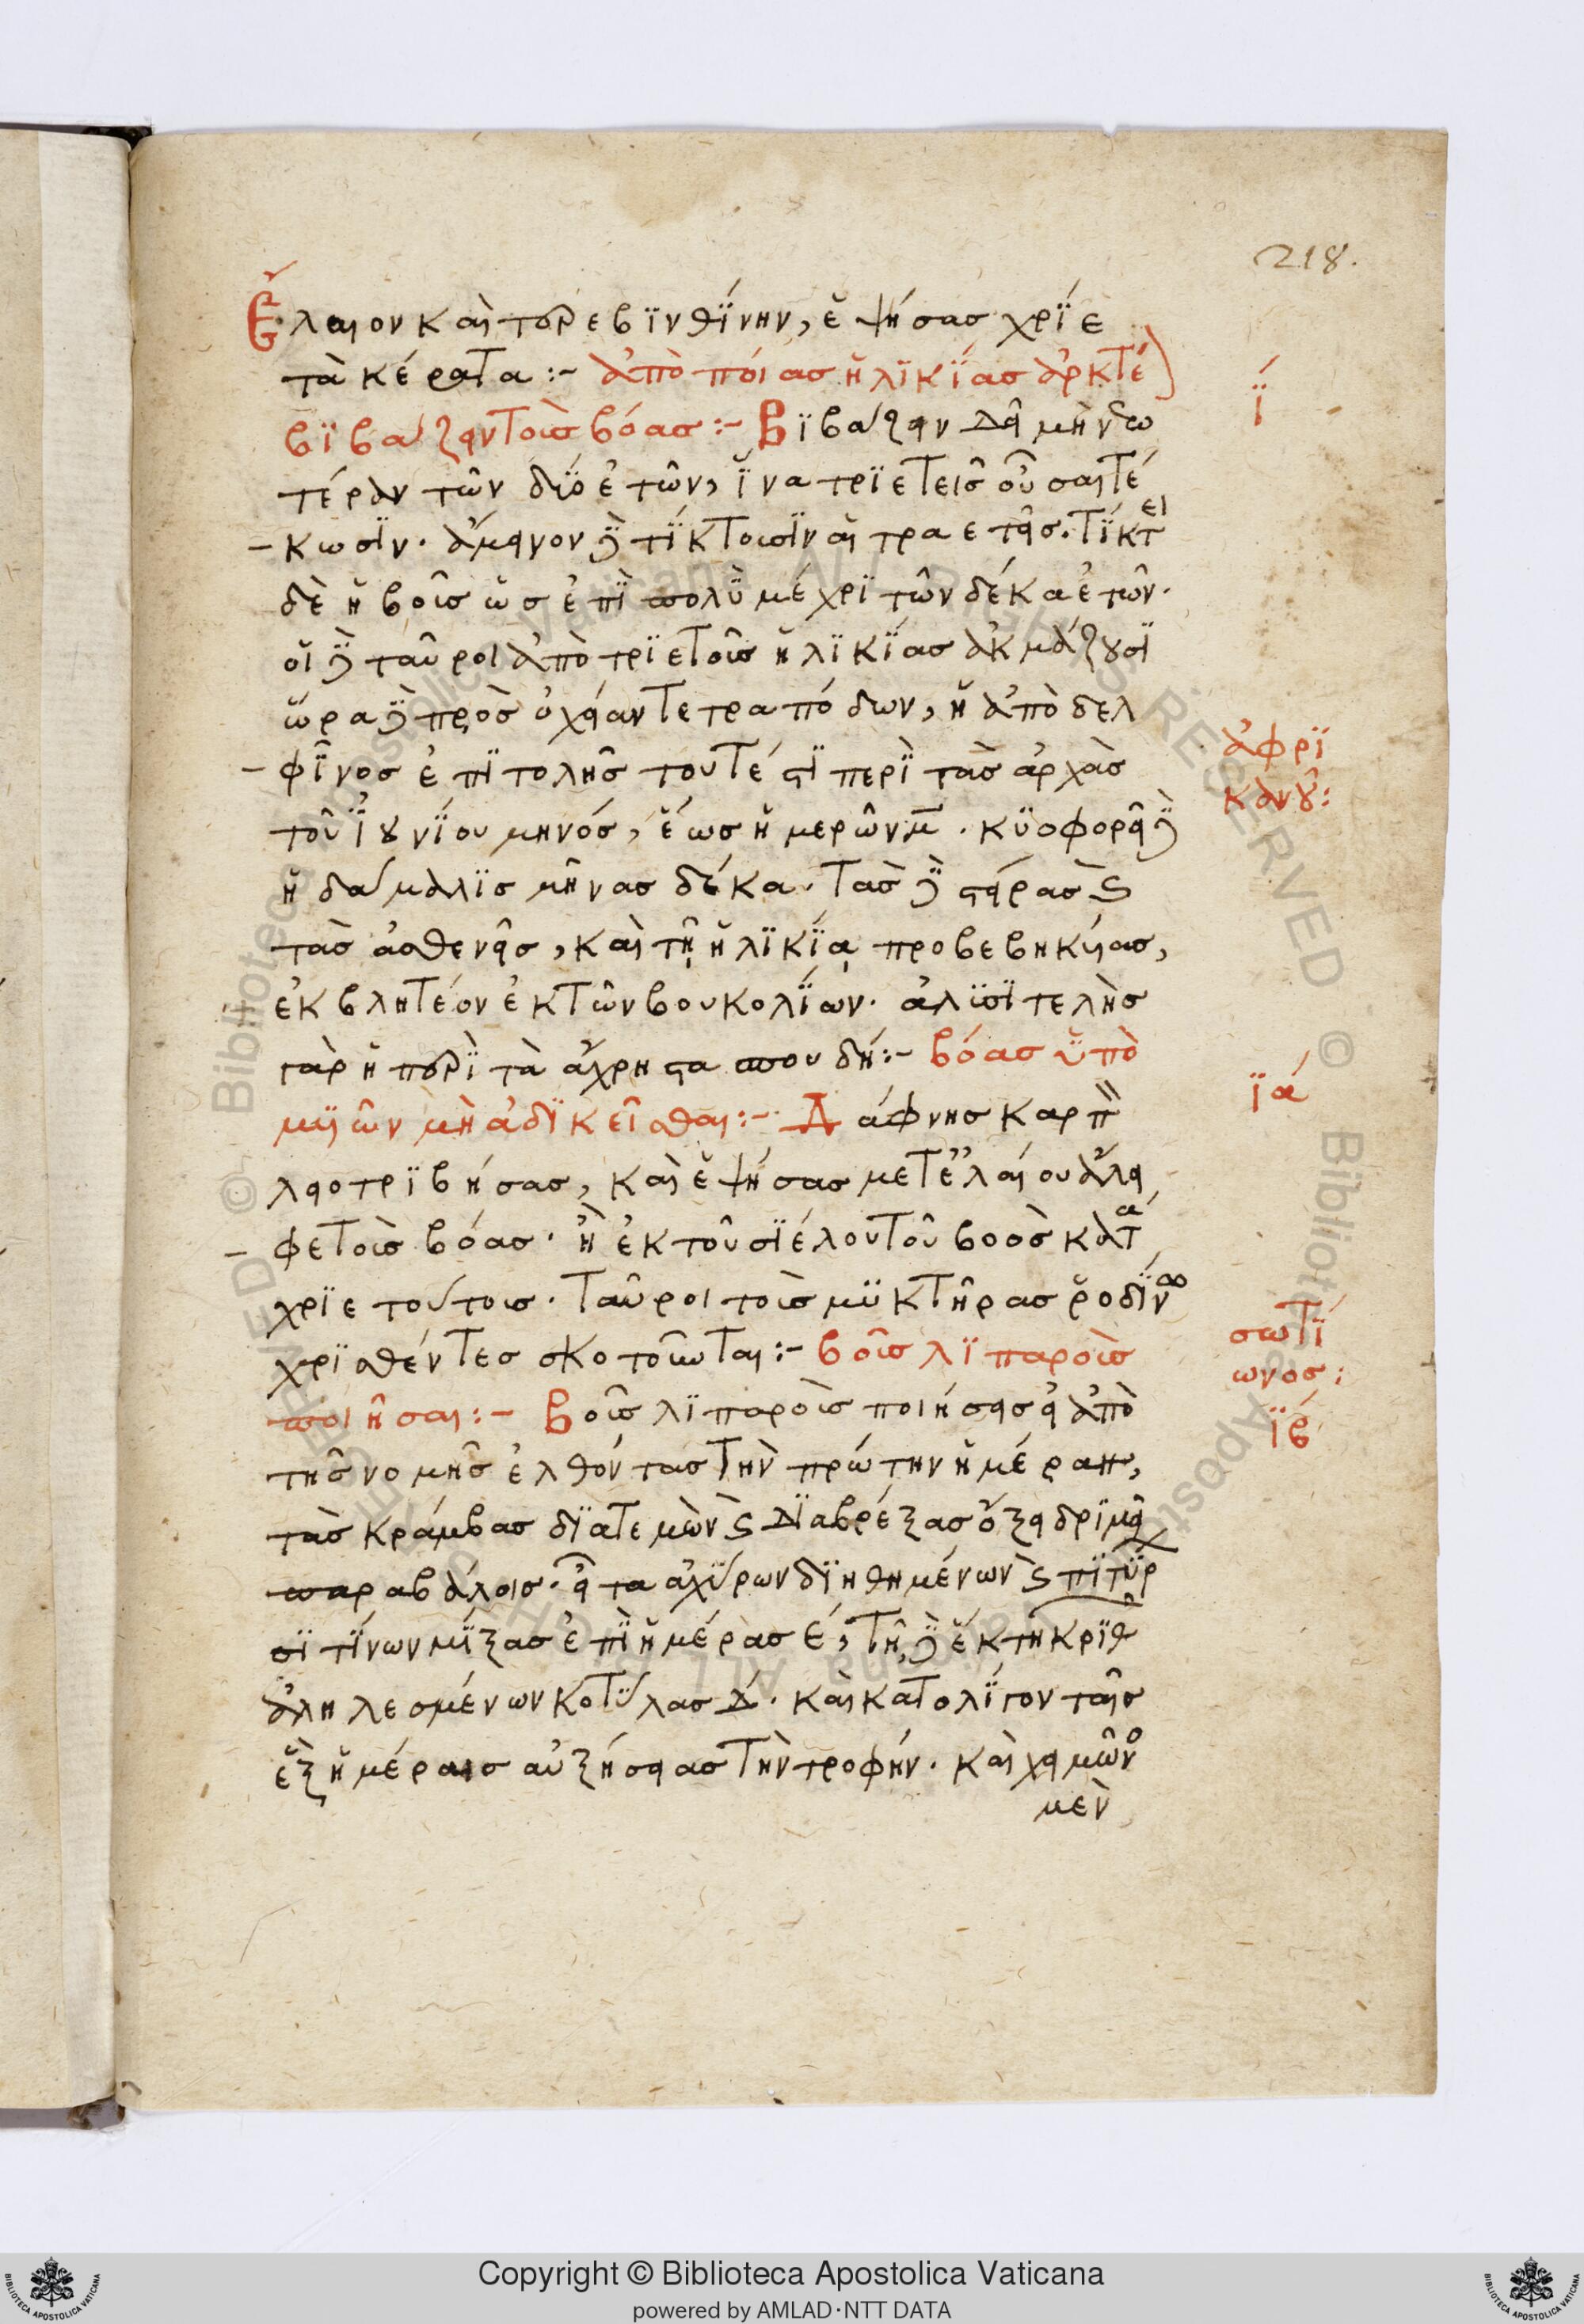 218.
Ἔλαιον καὶ τερεβϊνθΐνην, ἑψήσας χρῖε
τὰ κέρατα :- ἀπὸ ποίας ἡλϊκΐας ἀρκτέ
ΐ
βϊβάζειν τοὺς βόας :- Βϊβάζειν δεῖ μὴ νεω
τέραν τῶν δϊὸ ἐτῶν, ἵνα τρϊετεῖς οὖσαι τέ
κωσϊν. ἄμεινον δὲ τΐκτουσϊν αἱ τετραετεῖς. τΐκτει
δὲ ἡ βοῦς ὡς ἐπϊ πολὺ μέχρϊ τῶν δέκα ἐτῶν.
οἱ δὲ ταῦροι ἀπὸ τρϊετοῦς ἡλϊκΐας ἀκμάζουσϊ
ὥρα δὲ πρὸς ὀχείαν τετραπόδων, ἡ ἀπὸ δελ
φῖνος ἐπϊτολῆς τουτέστϊ περὶ τὰς ἀρχὰς
ἀφρϊ
κανοῦ:
τοῦ ἰουνΐου μηνός, ἕως ἡμερῶν μ̅. κυοφορεῖ δὲ
ἡ δάμαλϊς μῆνας δέκα. τὰς δὲ στείρας καὶ
τὰς ἀσθενεῖς, καὶ τῇ ἡλϊκΐᾳ προβεβηκυίας,
ἐκβλητέον ἐκ τῶν βουκολΐων. ἀλυσϊτελὴς
γὰρ ἡ περὶ τὰ ἄχρηστα σπουδή :- βόας ὑπὸ
ϊά
μυιῶν μὴ ἀδϊκεῖσθαι :- Δάφνης καρπὸν
λειοτρϊβήσας, καὶ ἑψήσας μετ' ἐλαίου ἄλει
φε τοὺς βόας. ἢ ἐκ τοῦ σϊέλου τοῦ βοὸς κατὰ
χρῖε τούτοις. ταῦροι τοὺς μυκτῆρας ῥοδΐνω
χρϊσθέντες σκοτοῦνται :- βοῦς λϊπαροὺς
σωτΐ
ωνος:
ποιῆσαι :- Βοῦς λϊπαροὺς ποιήσεις εἰ ἀπὸ
ϊβ
τῆς νομῆς ἐλθόντας τὴν πρώτην ἡμέραν,
τὰς κράμβας δϊατεμὼν καὶ δϊαβρέξας ὄξει δρϊμεῖ
παραβάλοις. εἶτα ἀχύρων δϊηθημένων καὶ πϊτύρ
σϊτΐνων μΐξας ἐπϊ ἡμέρας έ, τῇ δὲ ἕκτῃ κρϊθ
ἀληλεσμένων κοτύλας δ. καὶ κατολΐγον ταῖς
ἓξ ἡμέραις αὐξήσειας τὴν τροφήν. καὶ χειμῶνο
μὲν
Copyright © Biblioteca Apostolica Vaticana
powered by AMLAD·NTT DATA